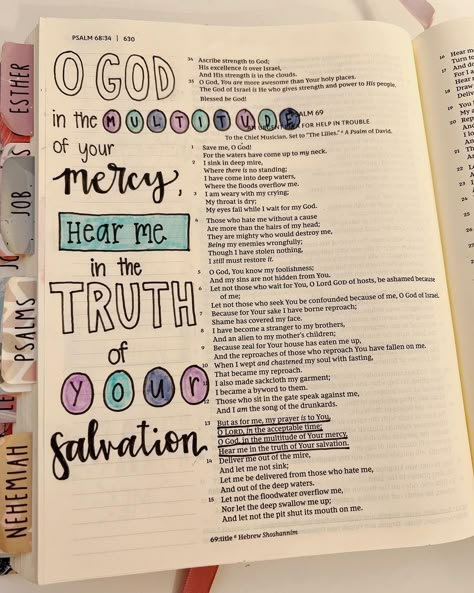 PSALM 68:34 | 630
ESTHER
JOB
PSALMS
NEHEMIAH
O GOD
in the MULTITUDE
of your
mercy,
Hear me
in the
TRUTH
of
your
salvation
34 Ascribe strength to God;
His excellence is over Israel,
And His strength is in the clouds.
35 O God, You are more awesome than Your holy places.
The God of Israel is He who gives strength and power to His people.
Blessed be God!
PSALM 69
FOR HELP IN TROUBLE
To the Chief Musician. Set to "The Lilies." ᵃ A Psalm of David.
1 Save me, O God!
For the waters have come up to my neck.
2 I sink in deep mire,
Where there is no standing;
I have come into deep waters,
Where the floods overflow me.
3 I am weary with my crying;
My throat is dry;
My eyes fail while I wait for my God.
4 Those who hate me without a cause
Are more than the hairs of my head;
They are mighty who would destroy me,
Being my enemies wrongfully;
Though I have stolen nothing,
I still must restore it.
5 O God, You know my foolishness;
And my sins are not hidden from You.
6 Let not those who wait for You, O Lord GOD of hosts, be ashamed because
of me;
Let not those who seek You be confounded because of me, O God of Israel.
7 Because for Your sake I have borne reproach;
Shame has covered my face.
8 I have become a stranger to my brothers,
And an alien to my mother's children;
9 Because zeal for Your house has eaten me up,
And the reproaches of those who reproach You have fallen on me.
10 When I wept and chastened my soul with fasting,
That became my reproach.
11 I also made sackcloth my garment;
I became a byword to them.
12 Those who sit in the gate speak against me,
And I am the song of the drunkards.
13 But as for me, my prayer is to You,
O LORD, in the acceptable time;
O God, in the multitude of Your mercy,
Hear me in the truth of Your salvation.
14 Deliver me out of the mire,
And let me not sink;
Let me be delivered from those who hate me,
And out of the deep waters.
15 Let not the floodwater overflow me,
Nor let the deep swallow me up;
And let not the pit shut its mouth on me.
69:title ᵃ Hebrew Shoshannim